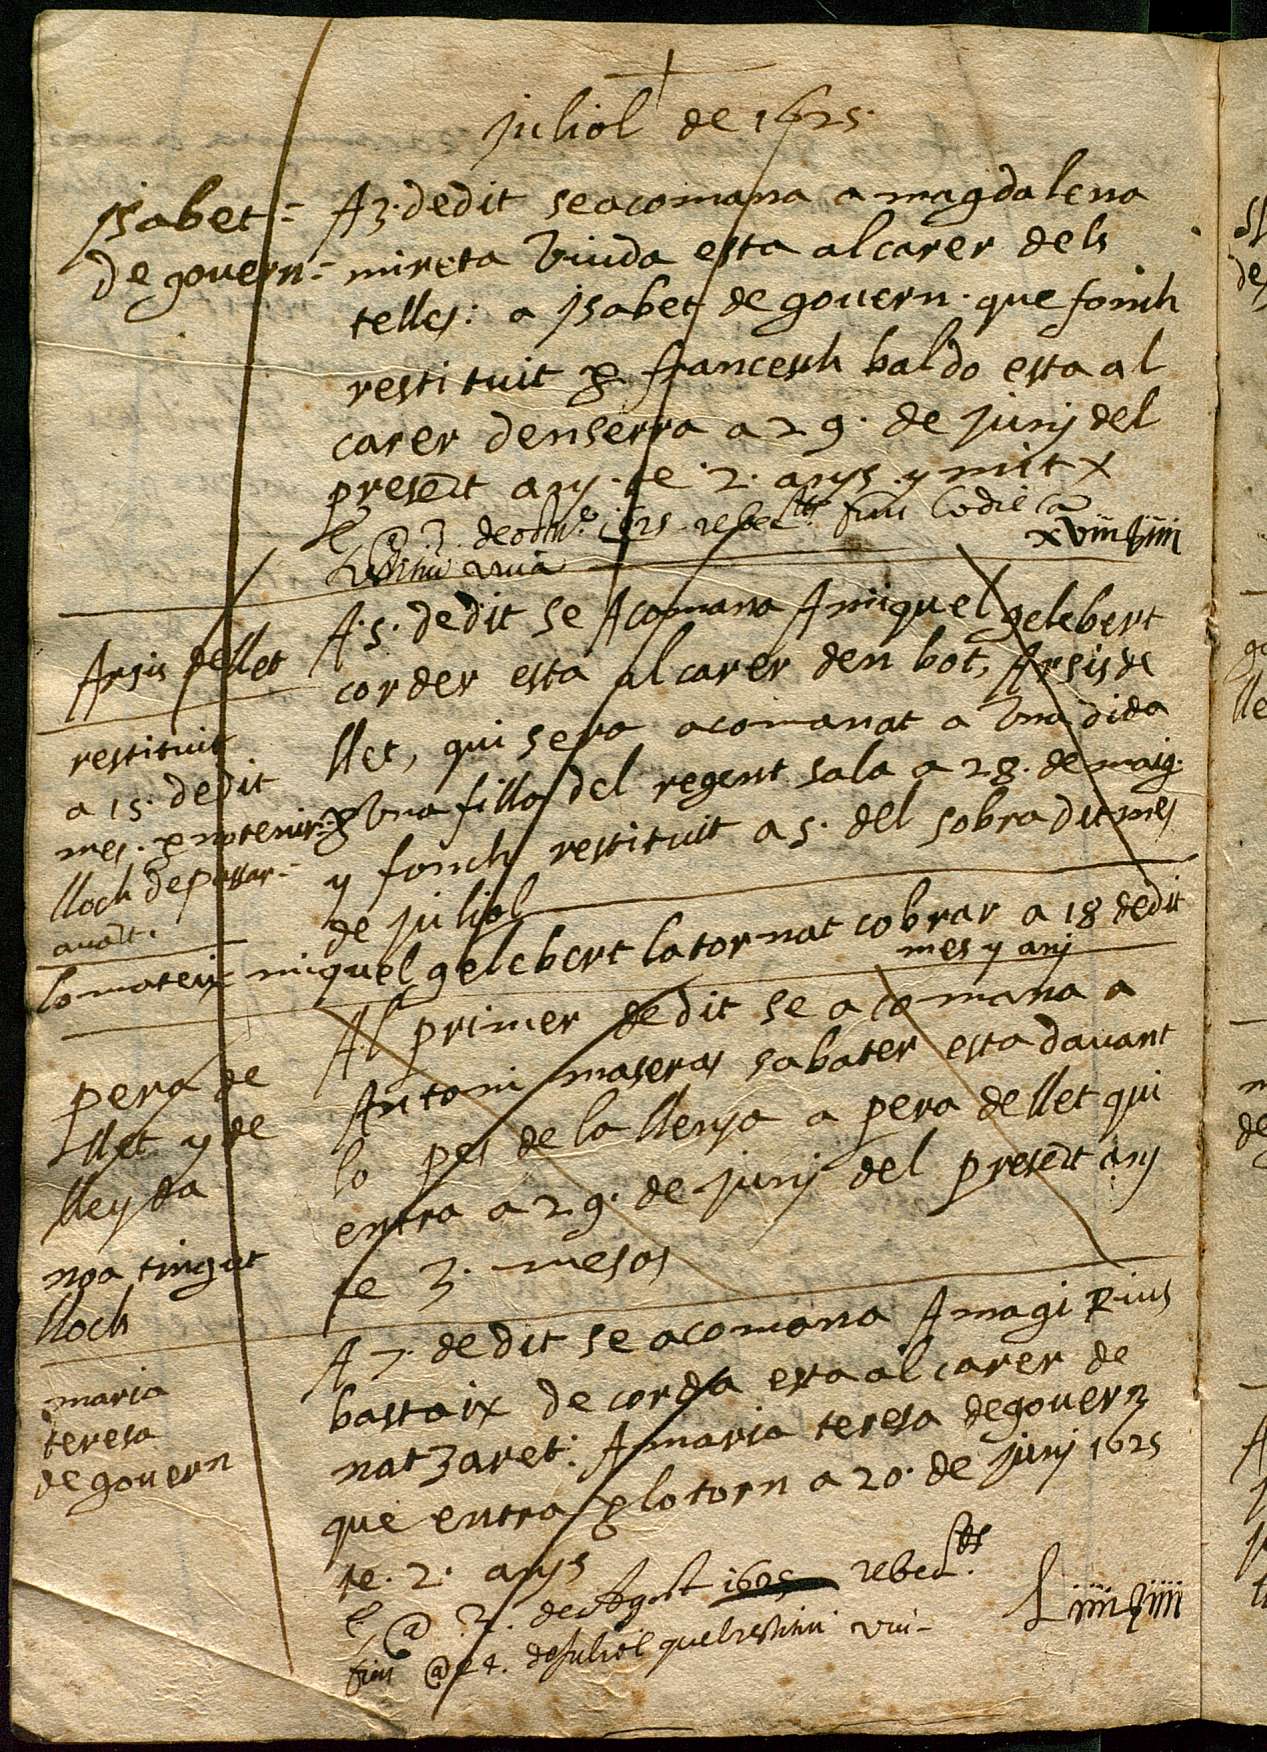 juliol de 1625.
ysabet =
de govern =
A 3. dedit se acomana a magdalena
mireta viuda esta al carer dels
telles: a ysabet de govern. que fonch
restituit p francesch baldo esta al
carer denserra a 29. de junj del
present any. te 2. anys y mit x
@ 3. 1625. rebec fins lo die
xviiij
Arsis dellet
restituit
a 15. dedit
mes. p no tenir
lloch de passar-
avant.
A. 5. dedit se Acomana A miquel gelebert
corder esta al carer den bot, Arsis de
llet, qui sera acomanat a una dida
p una filla del regent sala a 28. de maig.
y fonch restituit a 5. del sobradit mes
de juliol
lo mateix miquel gelebert la tornat cobrar a 18 dedit
mes y anj
pera de
llet y de
lleyda
noa tingut
lloch
Al primer dedit se acomana a
Antoni maseras sabater esta davant
lo pes de la llenya a pera dellet qui
entra a 29. de junj del present anj
te 3. mesos
maria
teresa
de govern
A 7. dedit se acomana A magi Rius
bastaix de corda esta al carer de
natzaret: A maria teresa degovern
que entra p lo torn a 20. de junj 1625
te. 2. anys
@ 2. de Agost 1625 rebec
fins @ 24. de Juliol quel restitui